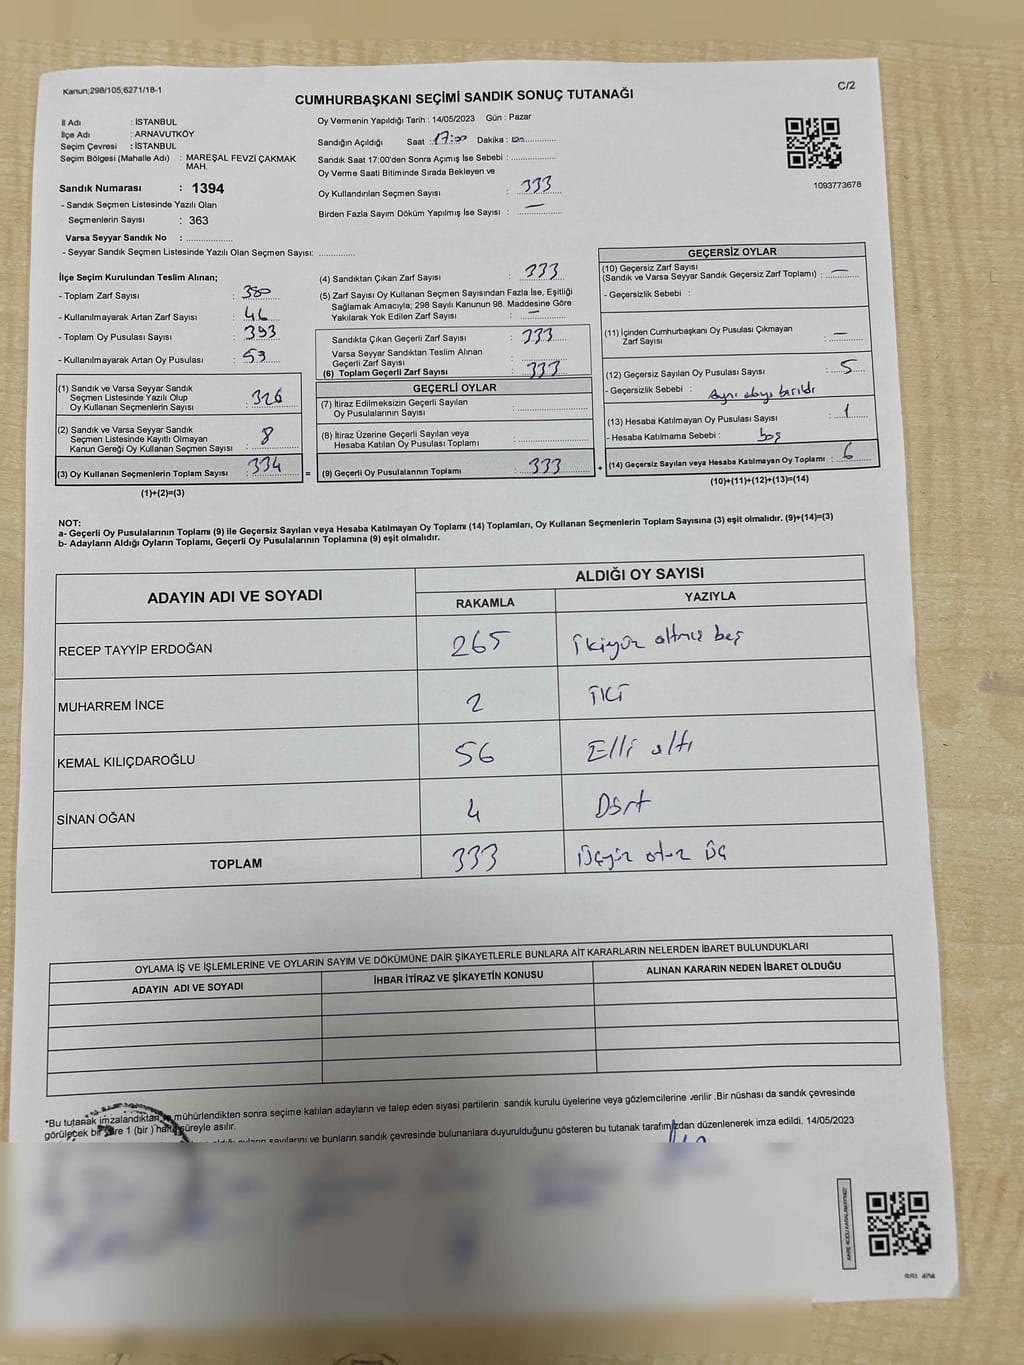 Kanun;298/105;6271/18-1
C/2
CUMHURBAŞKANI SEÇİMİ SANDIK SONUÇ TUTANAĞI
İl Adı : İSTANBUL
İlçe Adı : ARNAVUTKÖY
Seçim Çevresi : İSTANBUL
Seçim Bölgesi (Mahalle Adı) : MAREŞAL FEVZİ ÇAKMAK
MAH.
Sandık Numarası : 1394
- Sandık Seçmen Listesinde Yazılı Olan
Seçmenlerin Sayısı : 363
Varsa Seyyar Sandık No :
- Seyyar Sandık Seçmen Listesinde Yazılı Olan Seçmen Sayısı:
Oy Vermenin Yapıldığı Tarih : 14/05/2023 Gün : Pazar
Sandığın Açıldığı Saat : 17:00 Dakika :
Sandık Saat 17:00'den Sonra Açımış İse Sebebi :
Oy Verme Saati Bitiminde Sırada Bekleyen ve
Oy Kullandırılan Seçmen Sayısı : 333
Birden Fazla Sayım Döküm Yapılmış İse Sayısı : —
1093773678
İlçe Seçim Kurulundan Teslim Alınan;
- Toplam Zarf Sayısı : 380
- Kullanılmayarak Artan Zarf Sayısı : 46
- Toplam Oy Pusulası Sayısı : 393
- Kullanılmayarak Artan Oy Pusulası : 53
(1) Sandık ve Varsa Seyyar Sandık
Seçmen Listesinde Yazılı Olup
Oy Kullanan Seçmenlerin Sayısı : 326
(2) Sandık ve Varsa Seyyar Sandık
Seçmen Listesinde Kayıtlı Olmayan
Kanun Gereği Oy Kullanan Seçmen Sayısı : 8
(3) Oy Kullanan Seçmenlerin Toplam Sayısı : 334 =
(1)+(2)=(3)
(4) Sandıktan Çıkan Zarf Sayısı : 333
(5) Zarf Sayısı Oy Kullanan Seçmen Sayısından Fazla İse, Eşitliği
Sağlamak Amacıyla; 298 Sayılı Kanunun 98. Maddesine Göre
Yakılarak Yok Edilen Zarf Sayısı : —
Sandıkta Çıkan Geçerli Zarf Sayısı : 333
Varsa Seyyar Sandıktan Teslim Alınan
Geçerli Zarf Sayısı :
(6) Toplam Geçerli Zarf Sayısı : 333
GEÇERLİ OYLAR
(7) İtiraz Edilmeksizin Geçerli Sayılan
Oy Pusulalarının Sayısı :
(8) İtiraz Üzerine Geçerli Sayılan veya
Hesaba Katılan Oy Pusulası Toplamı :
(9) Geçerli Oy Pusulalarının Toplamı : 333 +
GEÇERSİZ OYLAR
(10) Geçersiz Zarf Sayısı
(Sandık ve Varsa Seyyar Sandık Geçersiz Zarf Toplamı) : —
- Geçersizlik Sebebi :
(11) İçinden Cumhurbaşkanı Oy Pusulası Çıkmayan
Zarf Sayısı : —
(12) Geçersiz Sayılan Oy Pusulası Sayısı : 5
- Geçersizlik Sebebi :
(13) Hesaba Katılmayan Oy Pusulası Sayısı : 1
- Hesaba Katılmama Sebebi : boş
(14) Geçersiz Sayılan veya Hesaba Katılmayan Oy Toplamı : 6
(10)+(11)+(12)+(13)=(14)
NOT:
a- Geçerli Oy Pusulalarının Toplamı (9) ile Geçersiz Sayılan veya Hesaba Katılmayan Oy Toplamı (14) Toplamları, Oy Kullanan Seçmenlerin Toplam Sayısına (3) eşit olmalıdır. (9)+(14)=(3)
b- Adayların Aldığı Oyların Toplamı, Geçerli Oy Pusulalarının Toplamına (9) eşit olmalıdır.
ADAYIN ADI VE SOYADI ALDIĞI OY SAYISI
RAKAMLA YAZIYLA
RECEP TAYYİP ERDOĞAN 265 İkiyüz altmış beş
MUHARREM İNCE 2 İKİ
KEMAL KILIÇDAROĞLU 56 Elli altı
SİNAN OĞAN 4 Dört
TOPLAM 333 Üçyüz otuz üç
OYLAMA İŞ VE İŞLEMLERİNE VE OYLARIN SAYIM VE DÖKÜMÜNE DAİR ŞİKAYETLERLE BUNLARA AİT KARARLARIN NELERDEN İBARET BULUNDUKLARI
ADAYIN ADI VE SOYADI İHBAR İTİRAZ VE ŞİKAYETİN KONUSU ALINAN KARARIN NEDEN İBARET OLDUĞU
*Bu tutanak imzalandıktan ve mühürlendikten sonra seçime katılan adayların ve talep eden siyasi partilerin sandık kurulu üyelerine veya gözlemcilerine verilir .Bir nüshası da sandık çevresinde
görülecek bir yere 1 (bir ) hafta süreyle asılır.
sayılarını ve bunların sandık çevresinde bulunanlara duyurulduğunu gösteren bu tutanak tarafımızdan düzenlenerek imza edildi. 14/05/2023